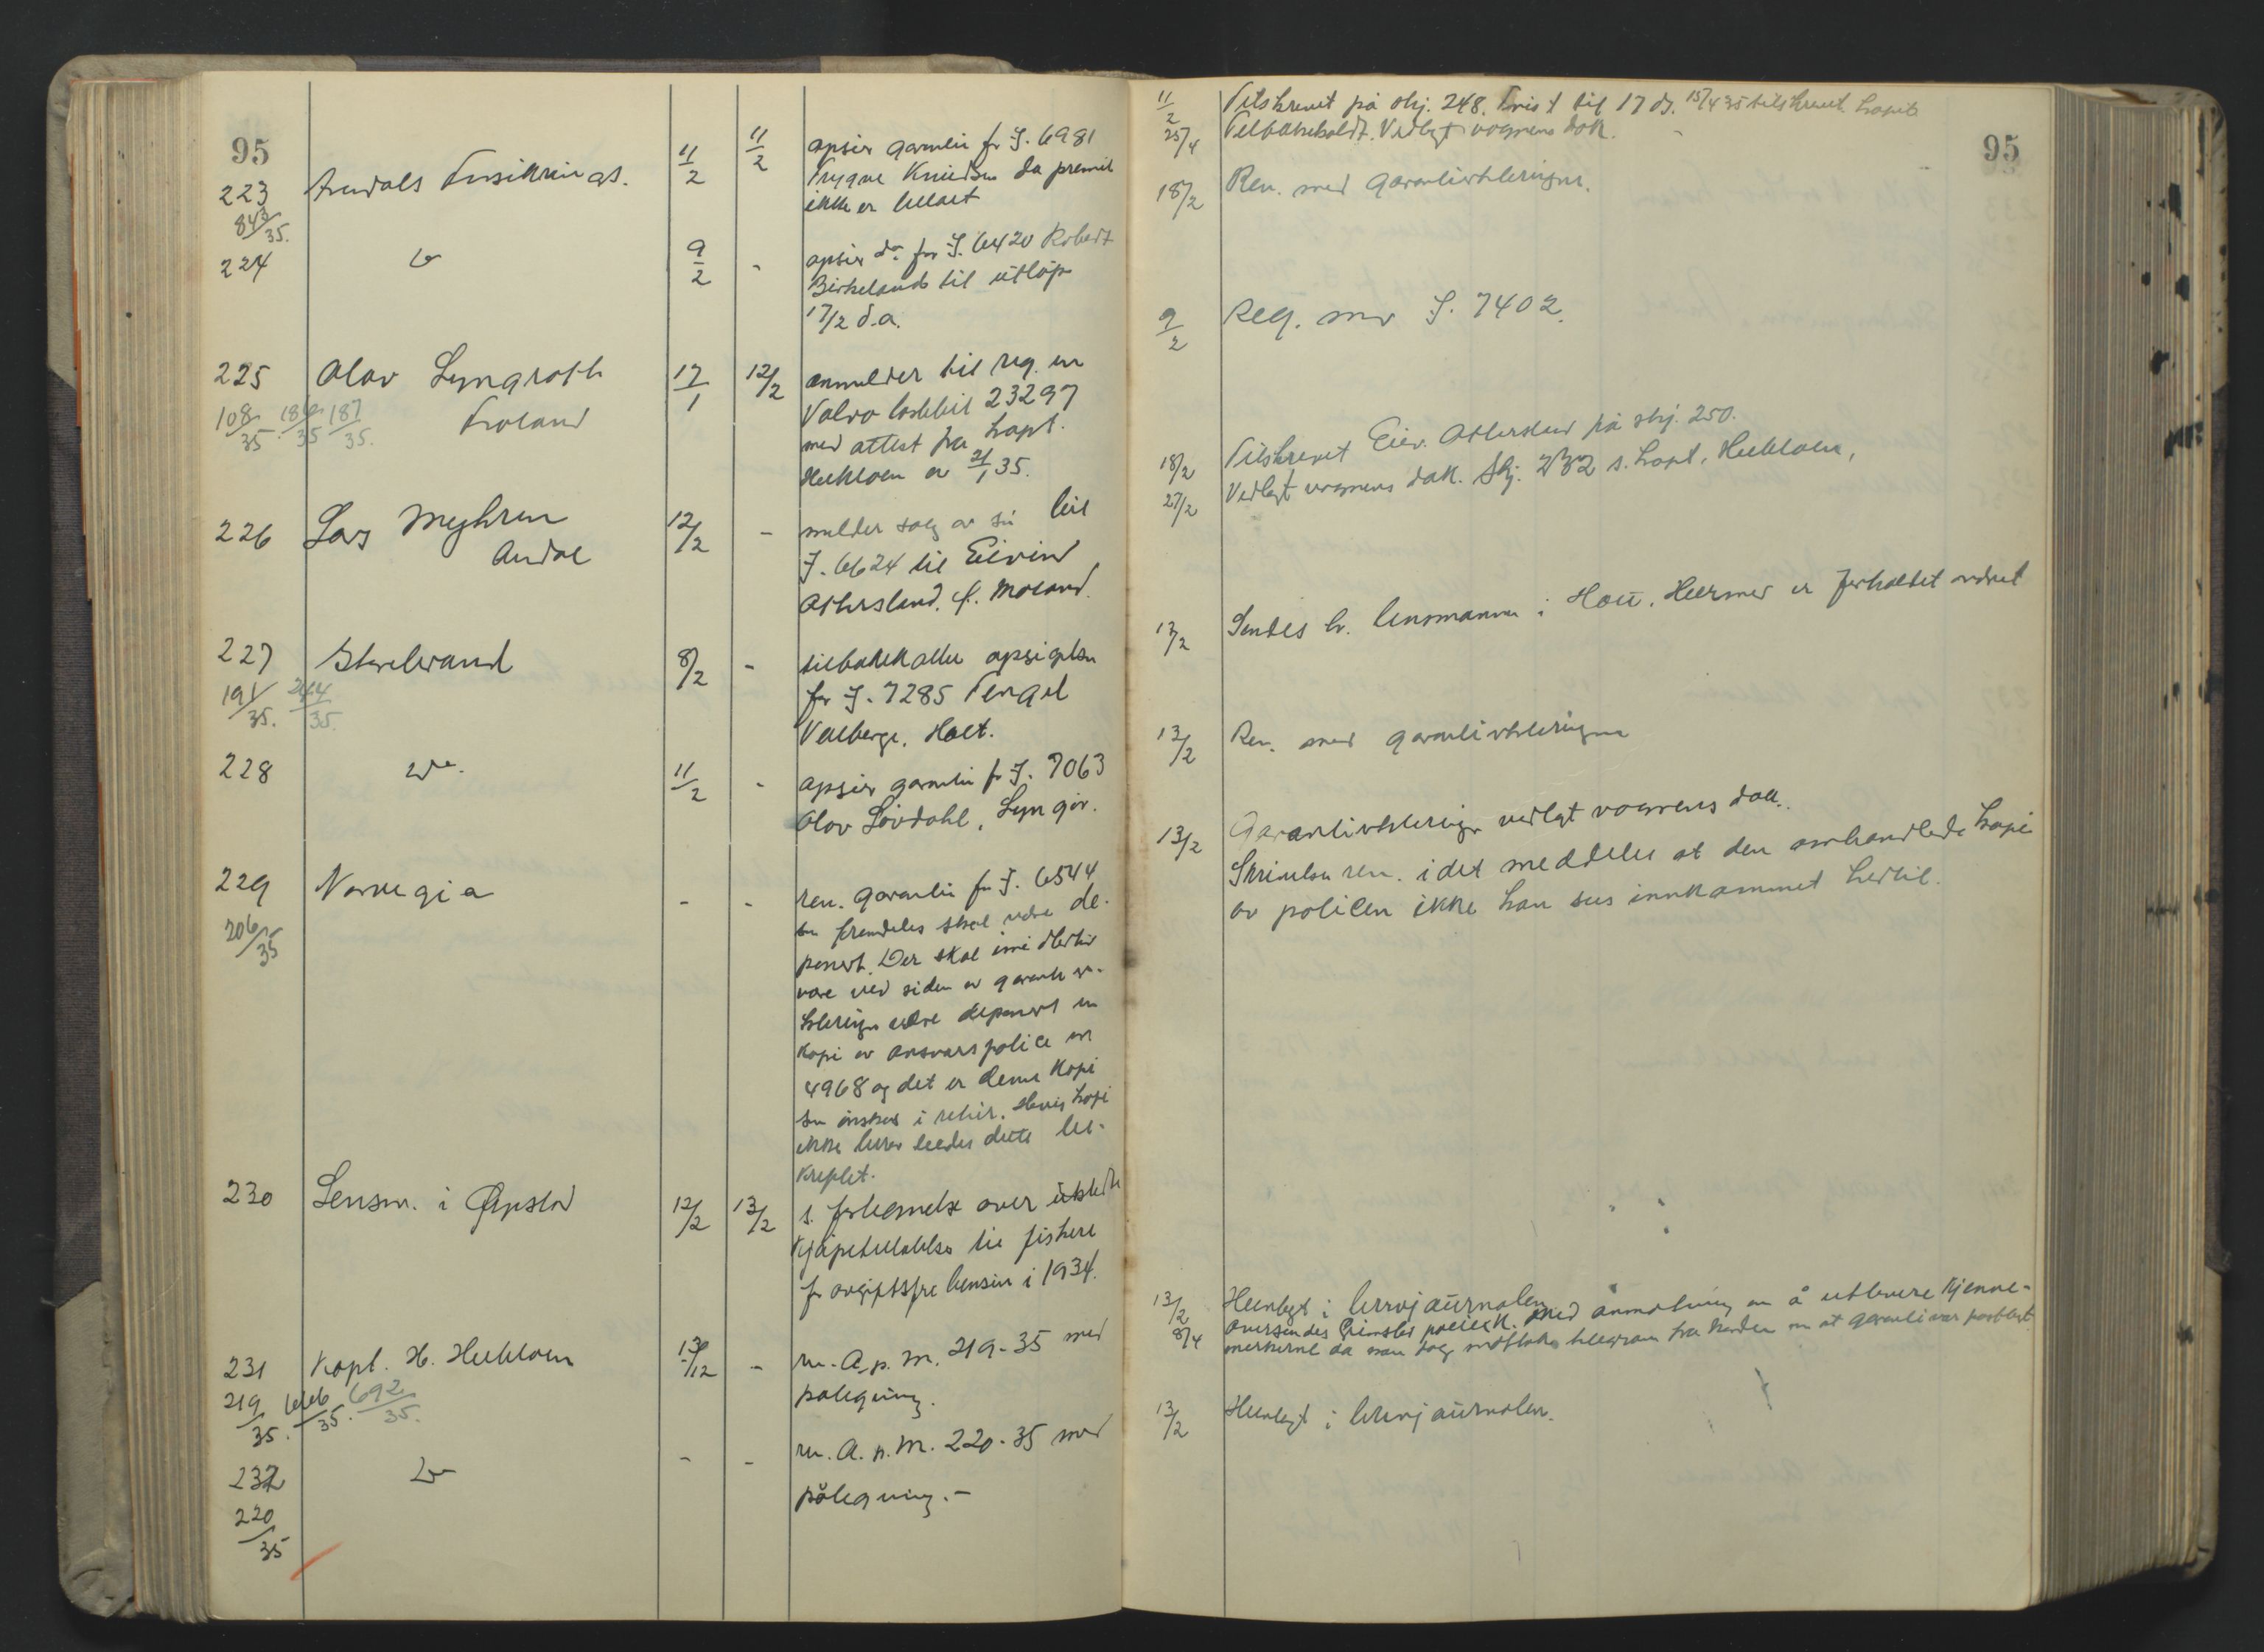 95
223 Arendals Forsikrings. 11/2 11/2 opsier garanti for I. 6981
843/35. Trygve Knudsen da premie
ikke er betalt
224 do 9/2 - opsier do for I. 6420 Robert
Birkeland til utløp
17/2 d.a.
225 Olav Lyngroth 17/1 12/2 anmelder til reg. en
108/35 186/35 187/35. Froland Volvo lastebil 23297
med attest fra kapt.
Heibloem av 21/1 35.
226 Lars Myhren 12/2 - melder salg av sin bil
Arndal I. 6624 til Eivind
Moland.
227 Storebrand 8/2 - tilbakekaller opsigelsen
191/35. 244/35. for I. 7285 Tengel
Valberg, Holt.
228 do. 11/2 - opsier garanti for I. 7063
Olav Løvdahl, Lyngør.
229 Norvegia - - ren. garanti for I. 6544
206/35 som fremdeles skal være de-
ponert. Der skal imidlertid
være ved siden av garantier-
klæringen være deponert en
kopi av ansvarspolice nr
4968 og det er denne kopi
som ønskes i retur. Hvis kopi
ikke beror bedes dette be-
kreftet.
230 Lensm. i Øyestad 12/2 13/2 s. fortegnelse over utstedte
kjøpetillatelser til fiskere
for avgiftsfri bensin i 1934.
231 Kapt. H. Heibloem 13/12 - ren. A.p.m. 219-35 med
219/35. 666/35. 692/35. påtegning.
232 do - - ren. A.p.m. 220-35 med
220/35 påtegning.-
95
11/2 Tilskrevet på skj. 248. Frist til 17 ds. 15/4 35 tilskrevet
25/4 Tilbakeholdt. Vedlagt vognens dok.
18/2 Ren. med garantierklæringen.
9/2 Reg. som I. 7402.
18/2 Tilskrevet Eiv. på skj. 250.
27/2 Vedlagt vognens dok. Skj. 232 s. Kapt. Heibloem,
13/2 Sendes hr. lensmannen i Holt. Hermed er forholdet ordnet
13/2 Ren. med garantierklæringen
13/2 Garantierklæringen vedlagt vognens dok.
Skrivelsen ren. idet meddeles at den omhandlede kopi
av policen ikke kan sees innkommet hertil.
13/2 Henlagt i brevjournalen
8/4 Oversendes Grimstad politik. med anmodning om å utlevere kjenne-
merkerne da man idag mottok telegram fra banken om at garanti var postlagt
13/2 Henlagt i brevjournalen.